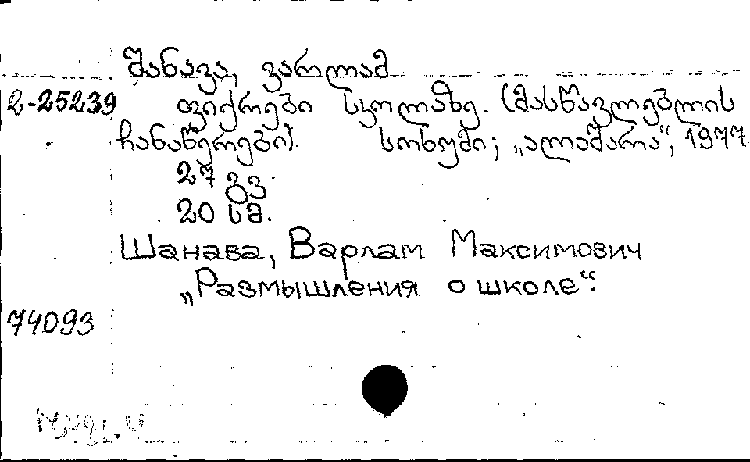 შანავა, ვარლამ
2-25239 ფიქრები სკოლაზე. (მასწავლებლის
ჩანაწერები). სოხუმი; „ალაშარა“, 1977.
27 გვ.
20 სმ.
Шанава, Варлам Максимович
„Размышления о школе“.
74093